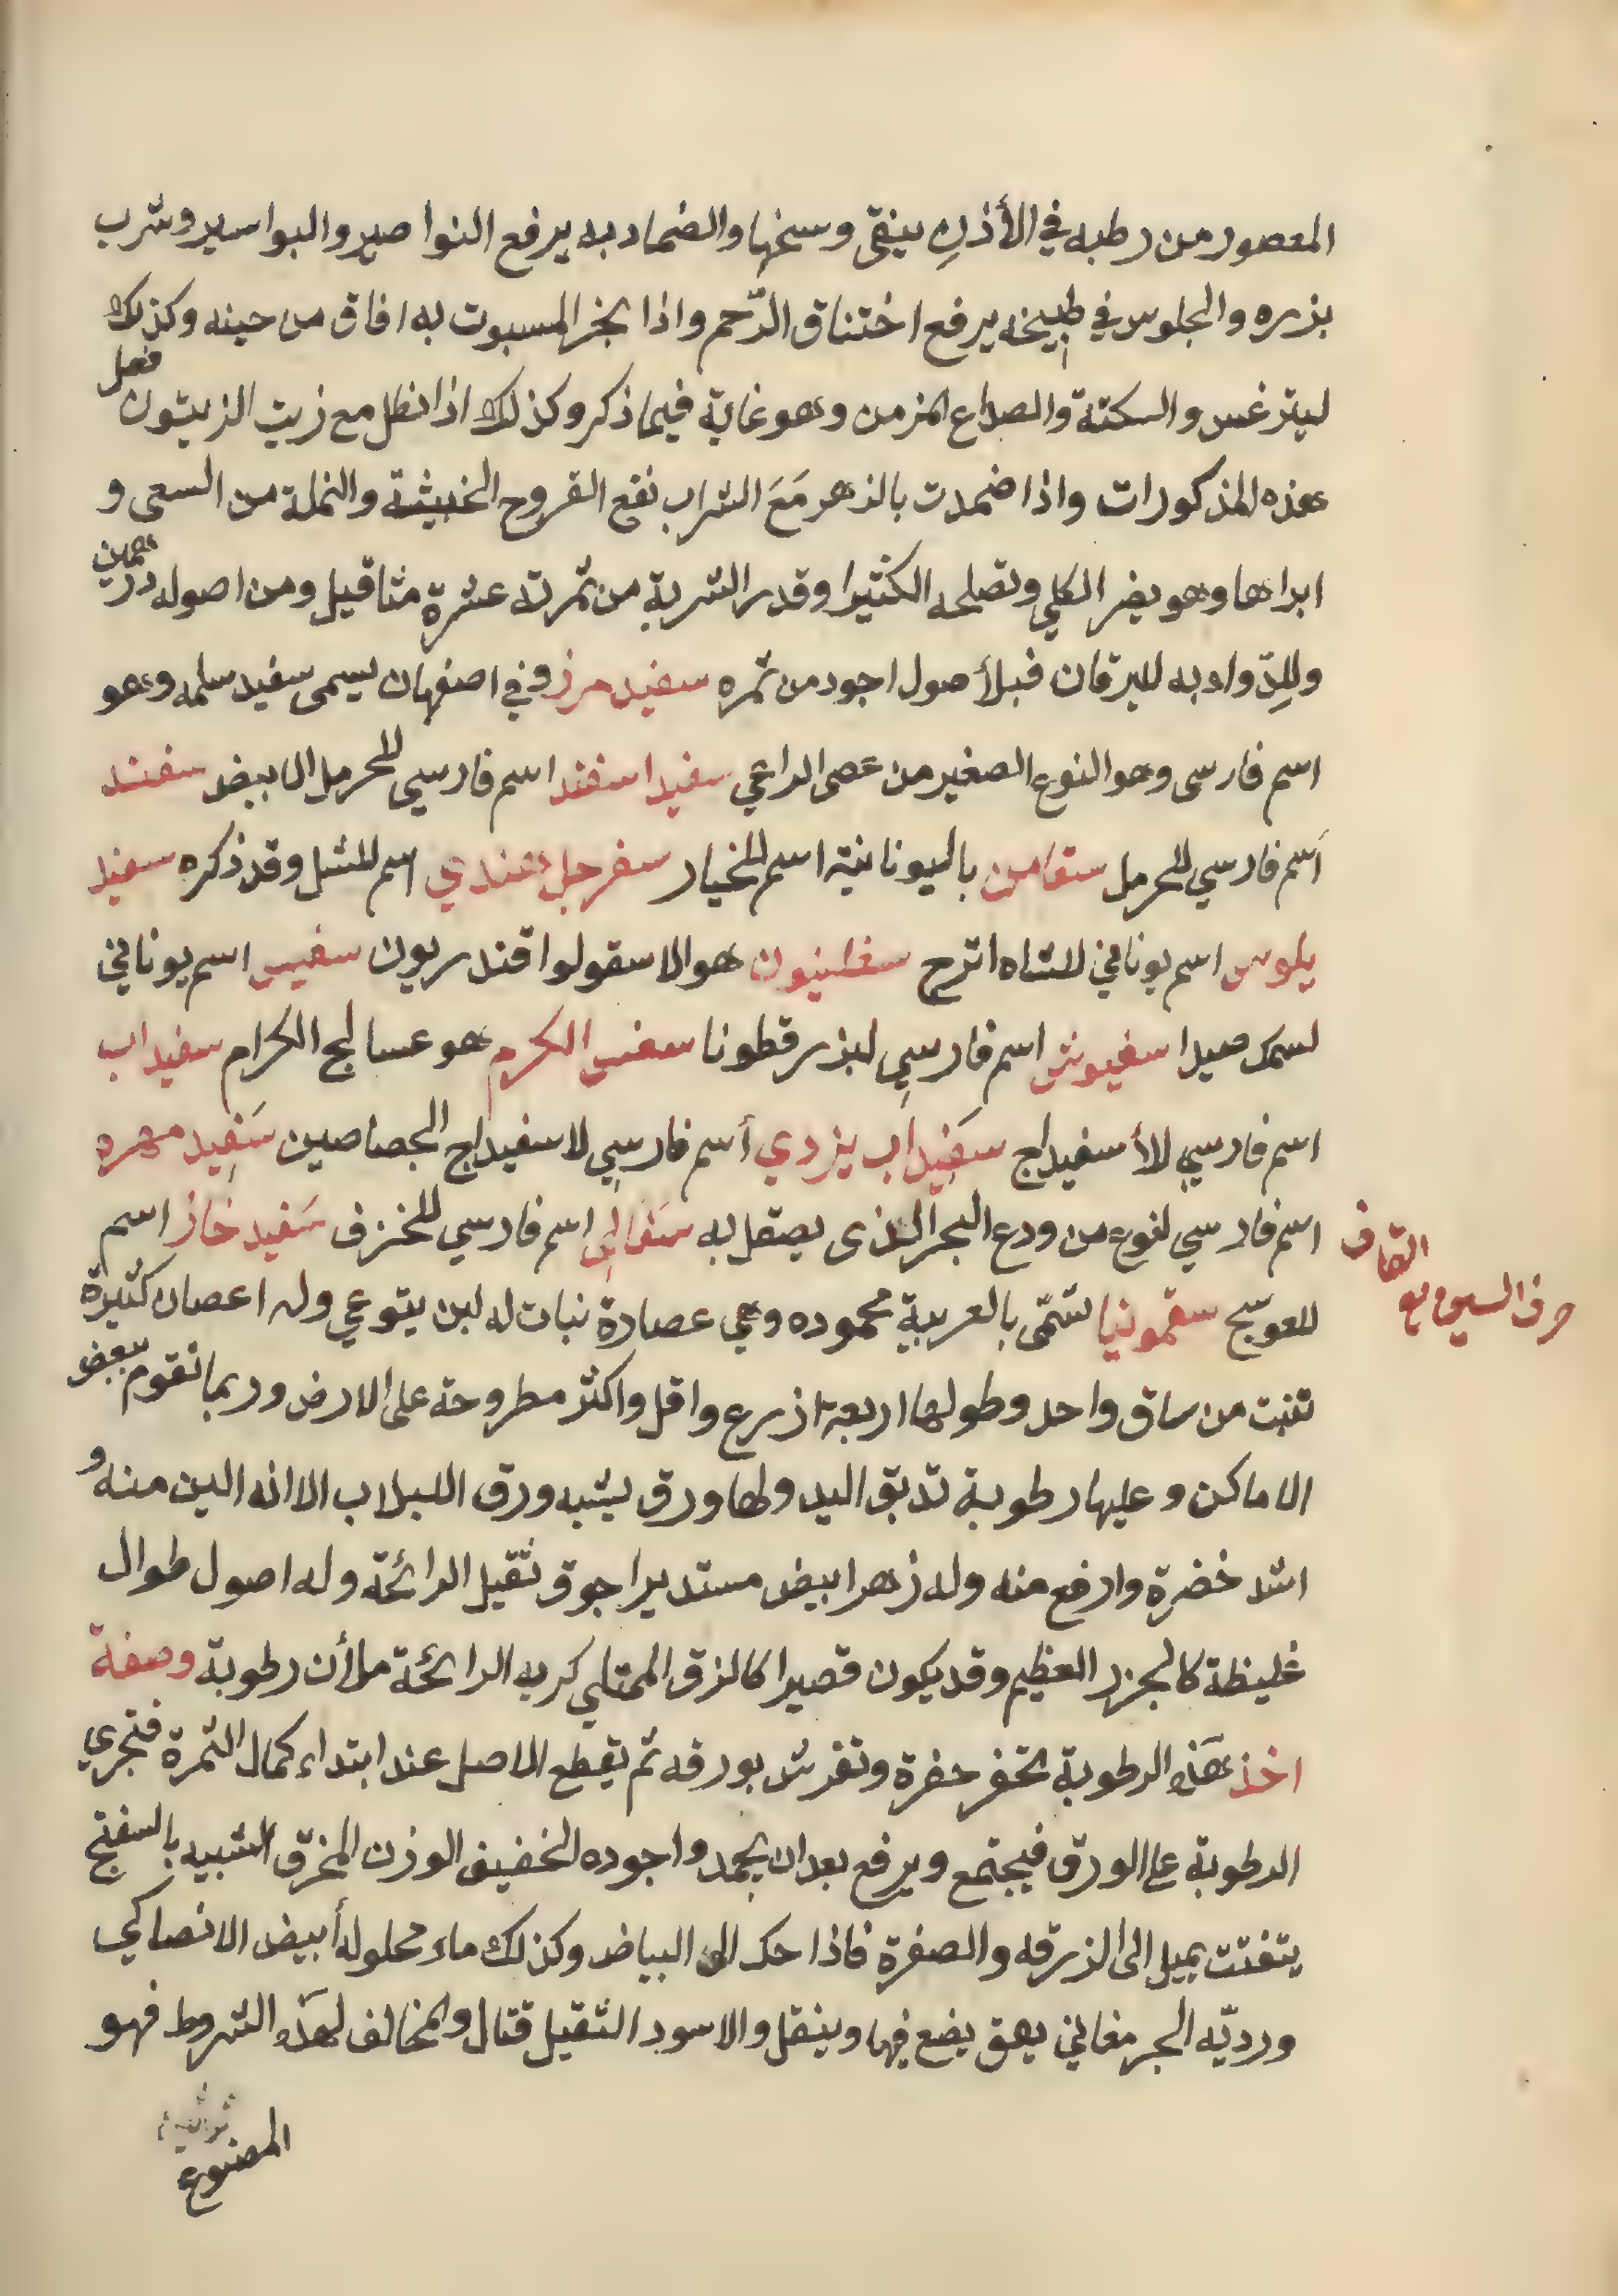 المعصور من رطبه في الأذن ينقى وسخها والضماد به يرفع النواصير والبواسير وشرب
بذره والجلوس في طبيخه يرفع اختناق الرّحم واذا بخر المسبوت به افاق من حينه وكذلك
ليترغس والسكتة والصداع المزمن وهو غاية فيما ذكر وكذلك اذا نطل مع زيت الزيتون فعل
هذه المذكورات واذا ضمدت بالزهر مَعَ الشراب نفع القروح الخبيثة والنملة من السعى و
ابراها وهو يضر الكلي وتصلحه الكثيرا وقدر الشربة من ثمرته عشرة مثاقيل ومن اصوله درهمين
وللِدّواد به لليرقان فبلأصول اجود من ثمره سفيد مرز وفي اصفهان يسمى سفيد سلمه وهو
اسم فارسى وهو النوع الصغير من عصى الراعي سفيد اسفند اسم فارسي للحرمل الابيض سفند
اَسم فارسي للحرمل سقامن باليونانية اسم للخيار سفرجل هندي اسم للشل وقد ذكره سفيد
يلوس اسم يوناني للشاه اترج سفلينون هو الاسقولوا قندريون سفيس اسم يوناني
لسمك صيدا سفيوش اسم فارسي لبزر قطونا سفس الكرم هو عساليج الكرام سفيداب
اسم فارسي للأسفيداج سَفِيداب يزدي أسم فارسي لاسفيداج الجصاصين سَفِيد مهره
اسم فارسي لنوع من ودع البحر الذى يصقل به سَفالى اسم فارسي للخزف سَفيد خاز اسم
للعوسج سقمونيا تسّمى بالعربية محموده وهي عصارة نبات له لبن يتوعي وله اعصان كثيرة
حرف السين مع القاف
تنبت من ساق واحد وطولها اربعة اذرع واقل واكثر مطروحة على الارض وربما تقوم ببعض
الاماكن وعليها رطوبة تدبق اليد ولها ورق يشبه ورق اللبلاب الا انه الين منه و
اشد خضرة وارفع منه وله زهر ابيض مستدير اجوف ثقيل الرائحة وله اصول طوال
غليظة كالجزر العظيم وقد يكون قصيرا كالزق الممتلي كريه الرائحة ملأن رطوبة وصفة
اخذ هَذه الرطوبة تحفر حفرة وتفرش بورقه ثم يقطع الاصل عند ابتداء كمال الثمرة فتجري
الرطوبة على الورق فيجتمع ويرفع بعد ان يجمد واجوده الخفيف الوزن المخرّق الشبيه بالسفنج
يتفتت يميل الى الزرقه والصفرة فاذا حك الى البياض وكذلك ماء محلوله أبيض الانصاكي
ورديّه الجرمغاني يعق يضع فيها وينقل والاسود الثقيل قتال والمخالف لهَذه الشروط فهو
المصنوع